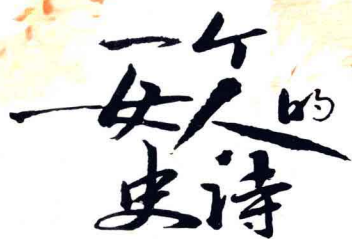 一个
女人的
史诗